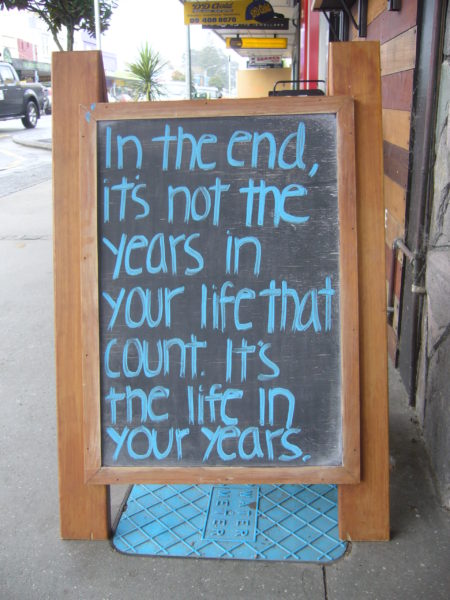 In the end,
it's not the
years in
your life that
count. It's
the life in
your years.
WATER
METER